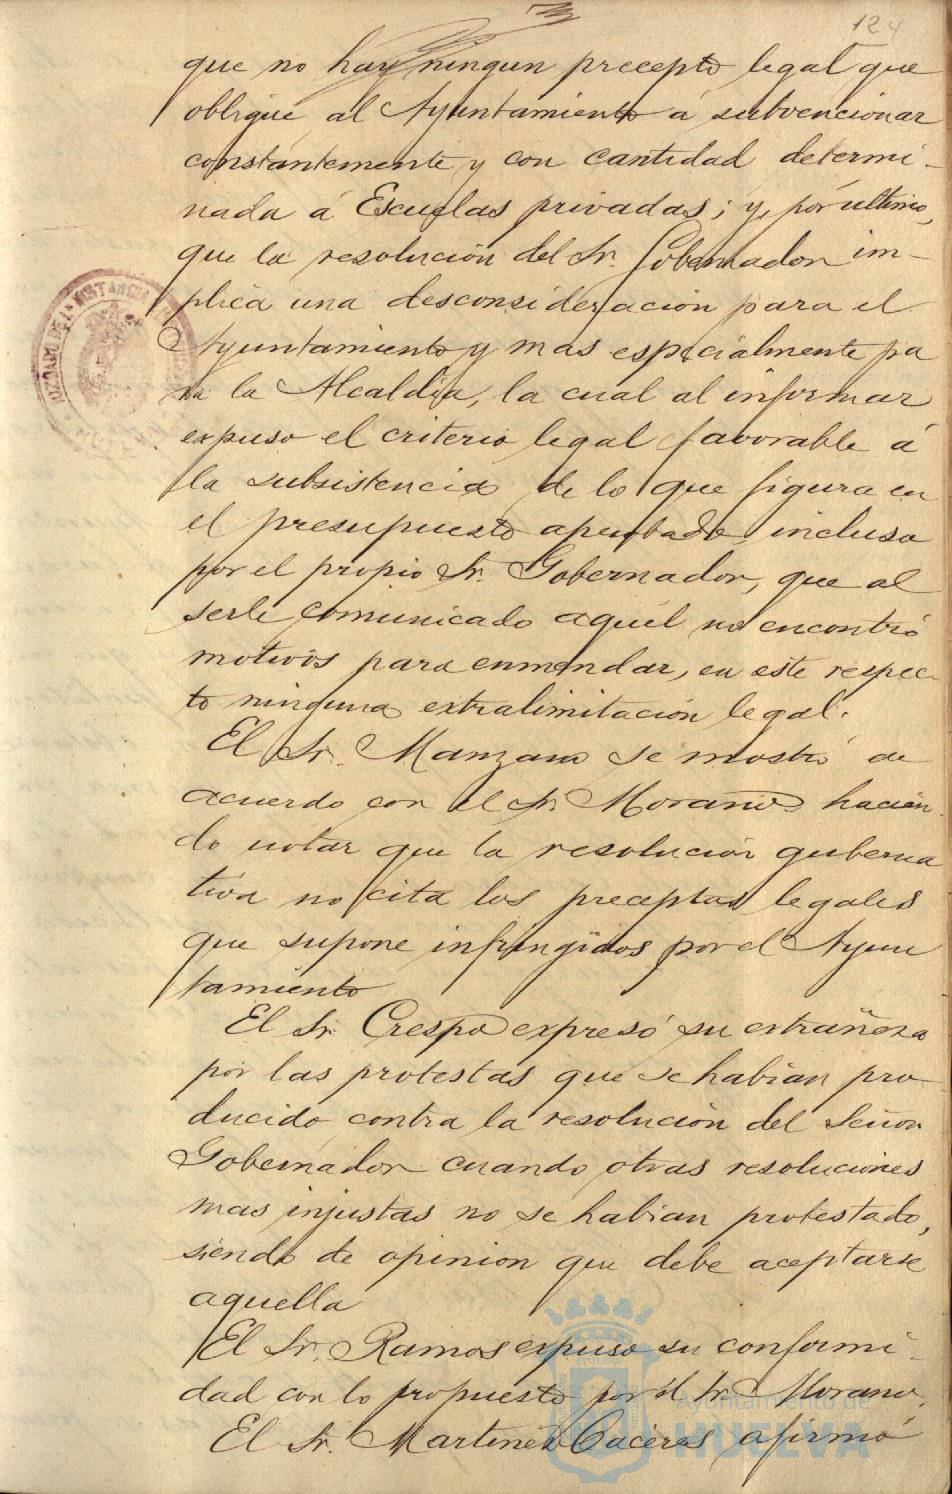 124
que no hay ningun precepto legal que
obligue al Ayuntamiento á subvencionar
constantemente y con cantidad determi-
nada á Escuelas privadas; y, por último,
que la resolución del Sr. Gobernador im-
plica una desconsideración para el
Ayuntamiento y mas especialmente pa
ra la Alcaldía, la cual al informar
expuso el criterio legal favorable á
la subsistencia de lo que figura en
el presupuesto aprobado incluso
por el propio Sr. Gobernador, que al
serle comunicado aquél no encontró
motivos para enmendar, en este respec-
to ninguna extralimitación legal.
El Sr. Manzano se mostró de
acuerdo con el Sr. Morano hacien
do notar que la resolución guberna
tiva no cita los preceptos legales
que supone infringidos por el Ayun
tamiento
El Sr. Crespo expresó su extrañeza
por las protestas que se habian pro
ducido contra la resolución del Señor
Gobernador cuando otras resoluciones
mas injustas no se habian protestado,
siendo de opinion que debe aceptarse
aquella
El Sr. Ramos expuso su conformi-
dad con lo propuesto por el Sr. Morano.
El Sr. Martinez Caceres afirmó
JUZGADO DE 1ª INSTANCIA
Ayuntamiento de
HUELVA